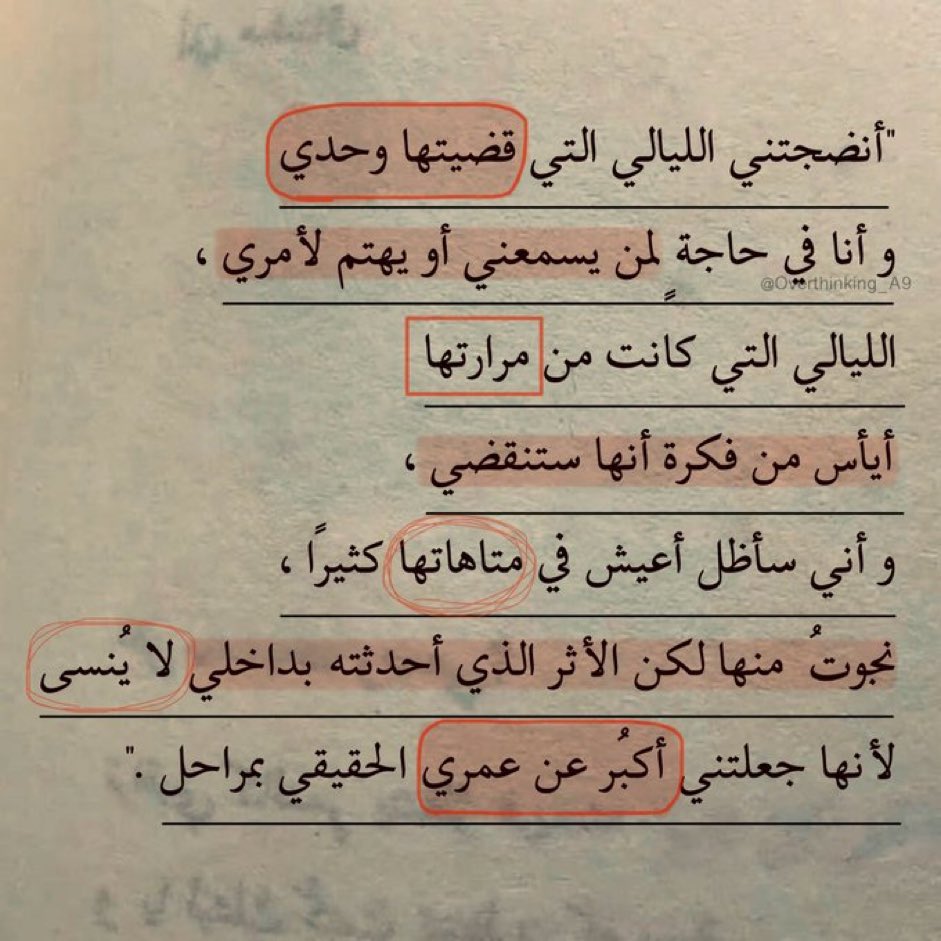 "أنضجتني الليالي التي قضيتها وحدي
و أنا في حاجةٍ لمن يسمعني أو يهتم لأمري ،
@Overthinking_A9
الليالي التي كانت من مرارتها
أيأس من فكرة أنها ستنقضي ،
و أني سأظل أعيش في متاهاتها كثيرًا ،
نجوتُ منها لكن الأثر الذي أحدثته بداخلي لا يُنسى
لأنها جعلتني أكبُر عن عمري الحقيقي بمراحل ."